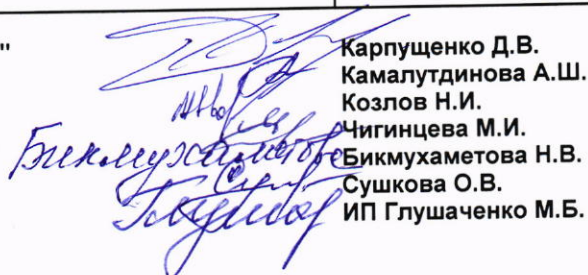 "
Карпущенко Д.В.
Камалутдинова А.Ш.
Козлов Н.И.
Чигинцева М.И.
Бикмухаметова Бикмухаметова Н.В.
Сушкова О.В.
ИП Глушаченко М.Б.